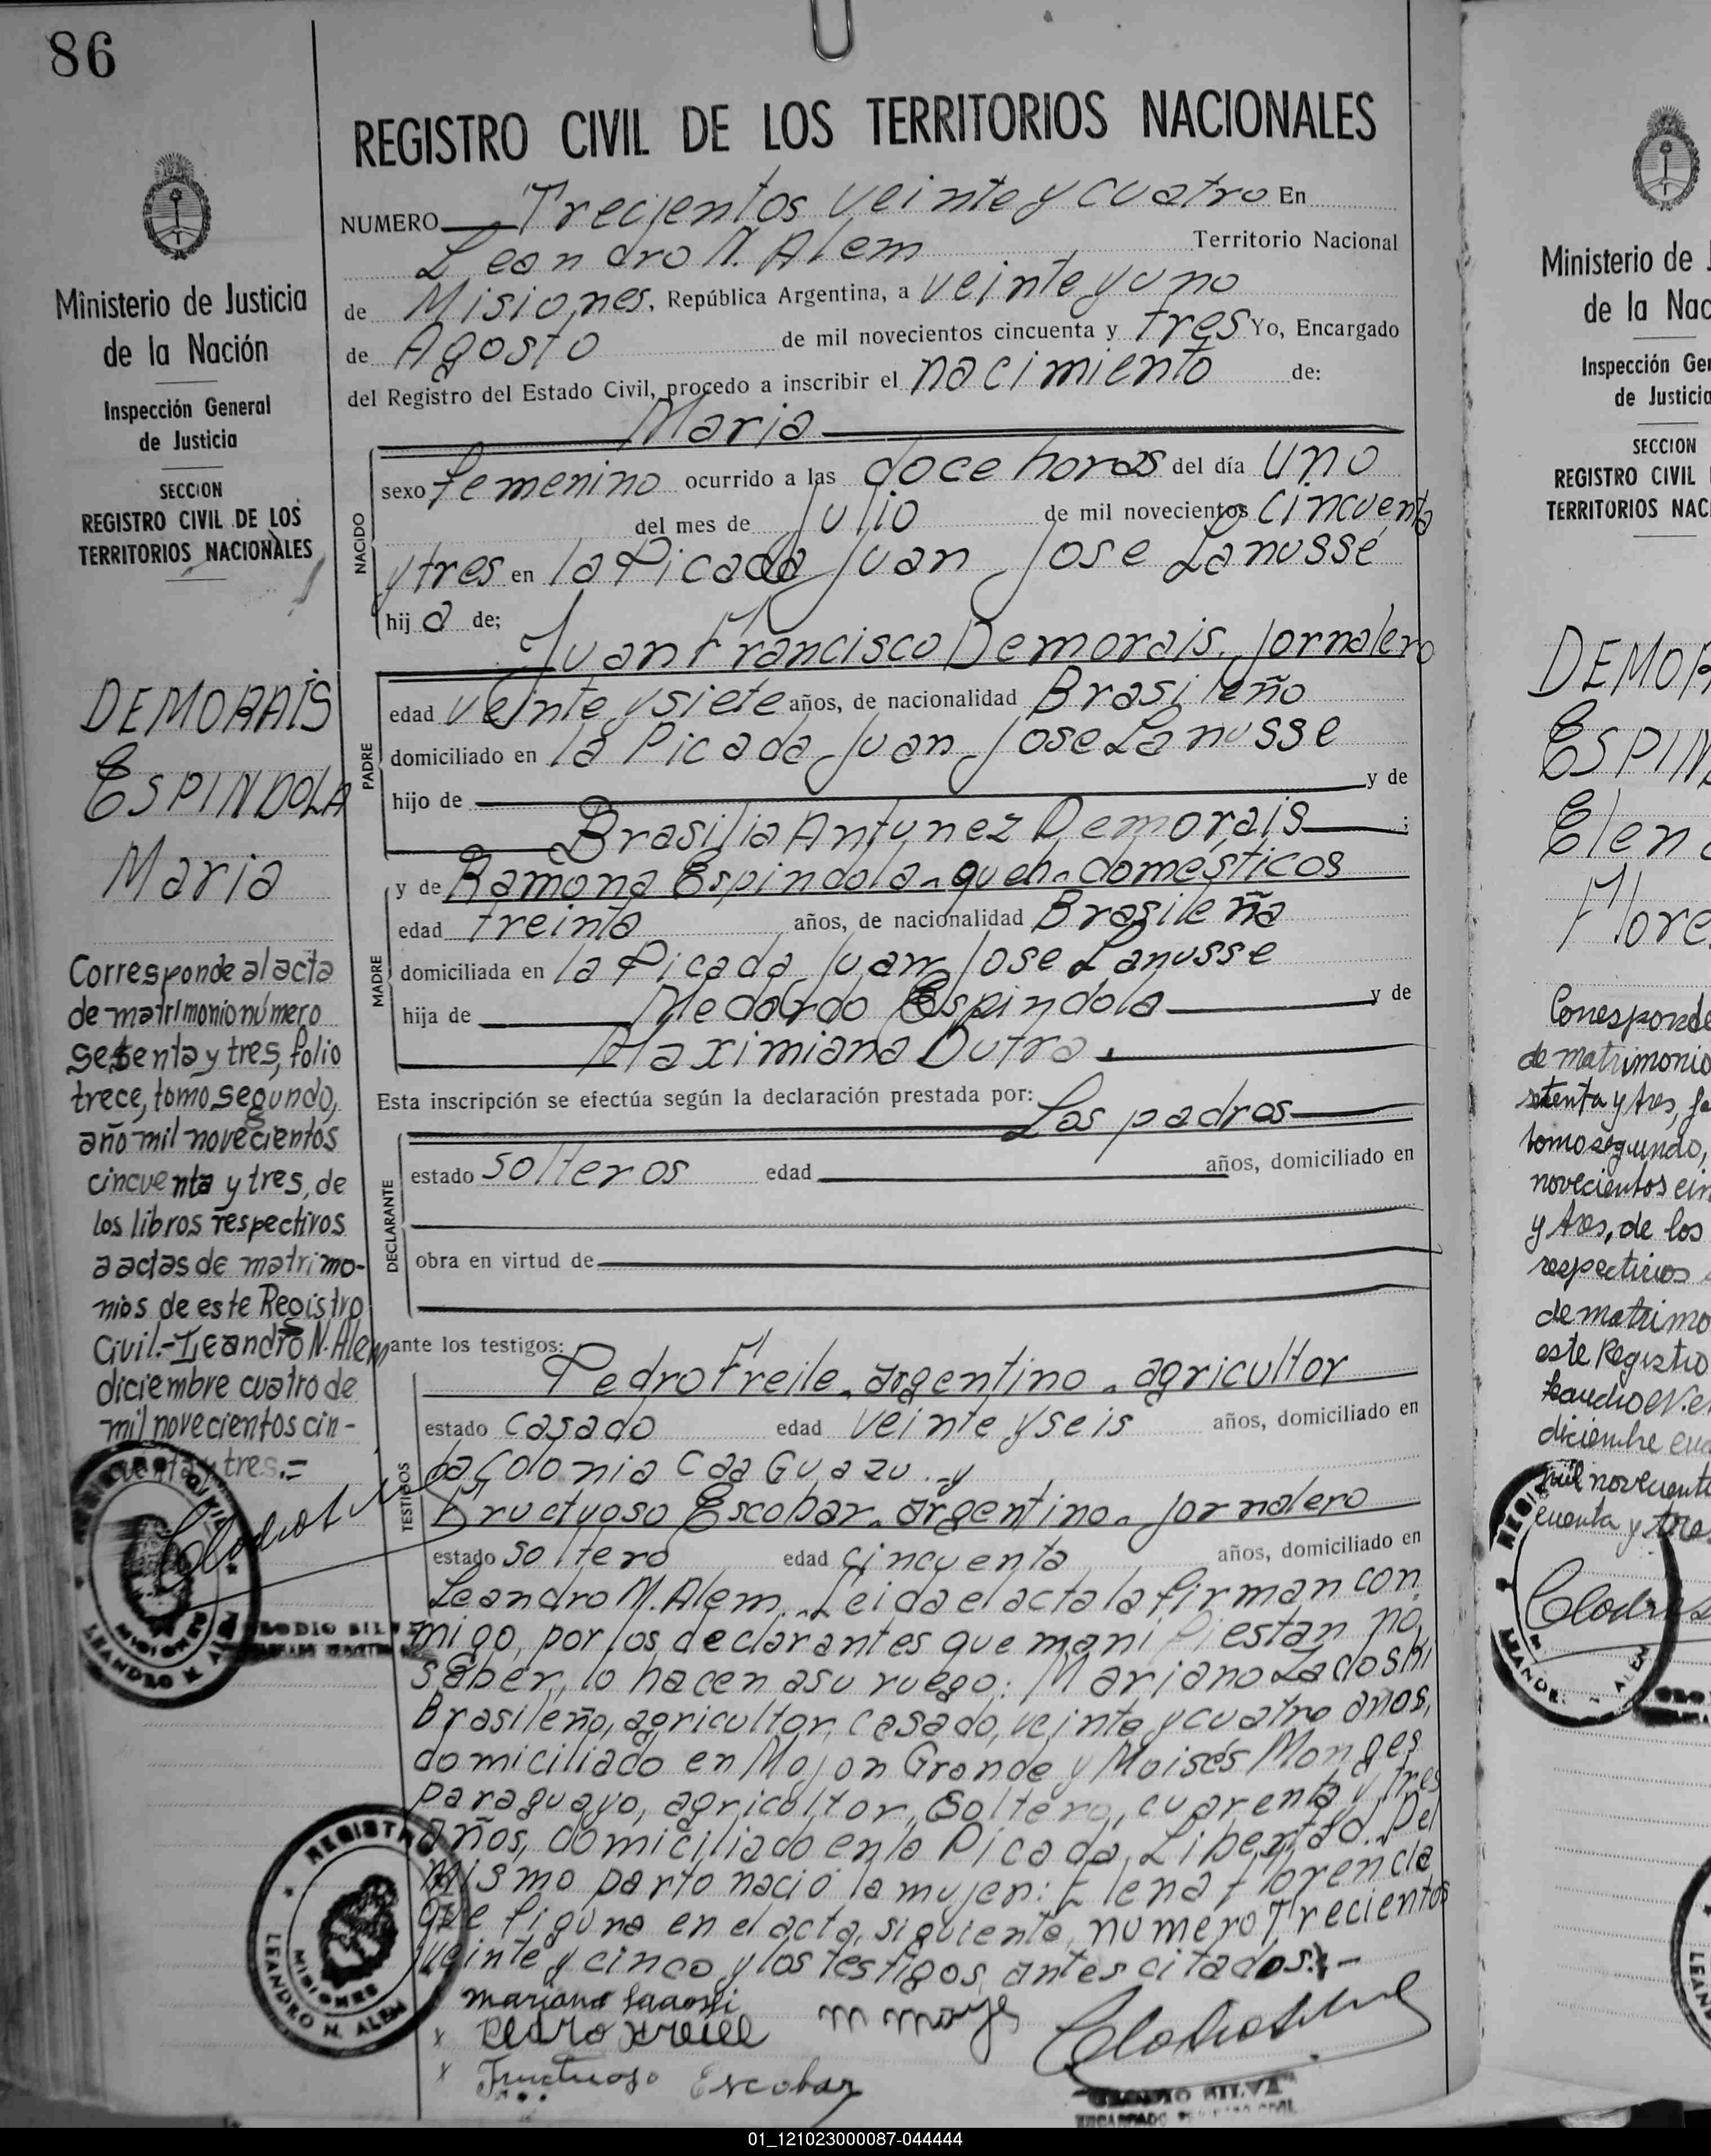 86
REGISTRO CIVIL DE LOS TERRITORIOS NACIONALES
NUMERO Trecientos veinte y cuatro En
Leandro N. Alem Territorio Nacional
de Misiones, República Argentina, a veinte y uno
de Agosto de mil novecientos cincuenta y tres Yo, Encargado
del Registro del Estado Civil, procedo a inscribir el nacimiento de:
Maria
NACIDO
sexo femenino ocurrido a las doce horas del día uno
del mes de Julio de mil novecientos cincuenta
y tres en la Picada Juan Jose Lanusse
hija de;
Juan Francisco Demorais. Jornalero
PADRE
edad veinte y siete años, de nacionalidad Brasileño
domiciliado en la Picada Juan Jose Lanusse
hijo de y de
Brasilia Antunez Demorais ;
y de Ramona Espindola - queh. domésticos
MADRE
edad treinta años, de nacionalidad Brasileña
domiciliada en la Picada Juan Jose Lanusse
hija de Medardo Espindola y de
Maximiana Dutra.
Esta inscripción se efectúa según la declaración prestada por: Los padros
DECLARANTE
estado solteros edad años, domiciliado en
obra en virtud de
ante los testigos:
Pedro Freile - argentino - agricultor
TESTIGOS
estado casado edad veinte y seis años, domiciliado en
la Colonia Caa Guazu. y
Fructuoso Escobar - argentino - jornalero
estado soltero edad cincuenta años, domiciliado en
Leandro N. Alem... Leida el acta la firman con
migo, por los declarantes que manifiestan no
saber, lo hacen a su ruego: Mariano Ladoski
Brasileño, agricultor, casado, veinte y cuatro años,
domiciliado en Mojon Grande y Moisés Monges
paraguayo, agricultor, soltero, cuarenta y tres
años, domiciliado en la Picada Libertad. Del
mismo parto nació la mujer: Elena Florencia
que figura en el acta siguiente numero Trecientos
veinte y cinco y los testigos antes citados.-
Mariano Ladoski
x Pedro Freile
x Fructuoso Escobar
CLODIO SILVA
ENCARGADO REGISTRO CIVIL
Ministerio de Justicia
de la Nación
Inspección General
de Justicia
SECCION
REGISTRO CIVIL DE LOS
TERRITORIOS NACIONALES
DEMORAIS
ESPINDOLA
Maria
Corresponde al acta
de matrimonio número
setenta y tres, folio
trece, tomo segundo,
año mil novecientos
cincuenta y tres, de
los libros respectivos
a actas de matrimo-
nios de este Registro
Civil.- Leandro N. Alem
diciembre cuatro de
mil novecientos cin-
cuenta y tres.=
REGISTRO CIVIL
MISIONES
LEANDRO N. ALEM
CLODIO SILVA
REGISTRO
MISIONES
LEANDRO N. ALEM
Ministerio de J
de la Nac
Inspección Gen
de Justicia
SECCION
REGISTRO CIVIL
TERRITORIOS NAC
DEMOR
ESPIN
Elen
Flore
Corresponde
de matrimonio
setenta y tres, fo
tomo segundo,
novecientos cin
y tres, de los
respectivos
de matrimo
este Registro
Leandro N. 
diciembre cua
mil novecient
cuenta y tres
01_121023000087-044444